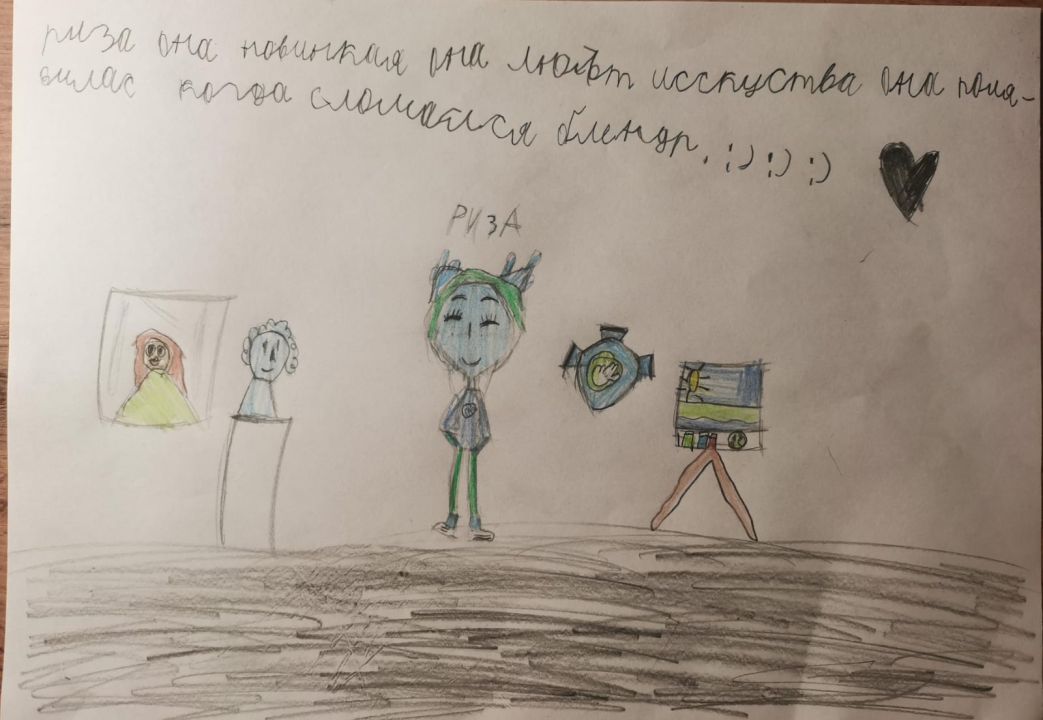 риза она новинкая она люьт исскуства она поия-
вилас когда сломаеися блендр. ;) ;) ;)
РИЗА